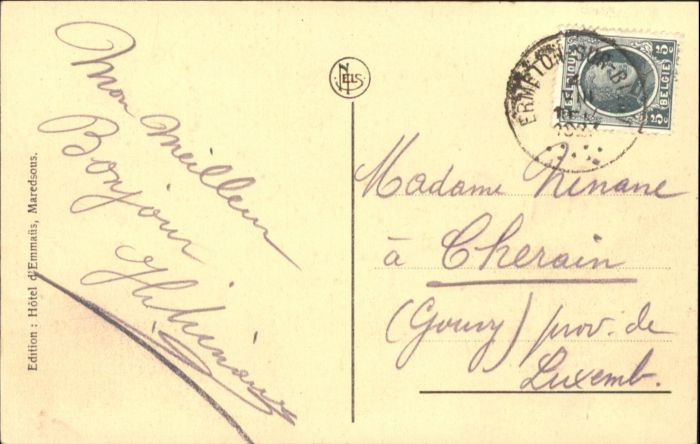 Mon Meilleur
Bonjour
Edition : Hôtel d'Emmaüs, Maredsous.
NELS
ERMETON-SUR-BIERT
BELGIQUE
BELGIË
5c 5c
Madame Ninane
à Cherain
(Gouvy) prov. de
Luxemb.